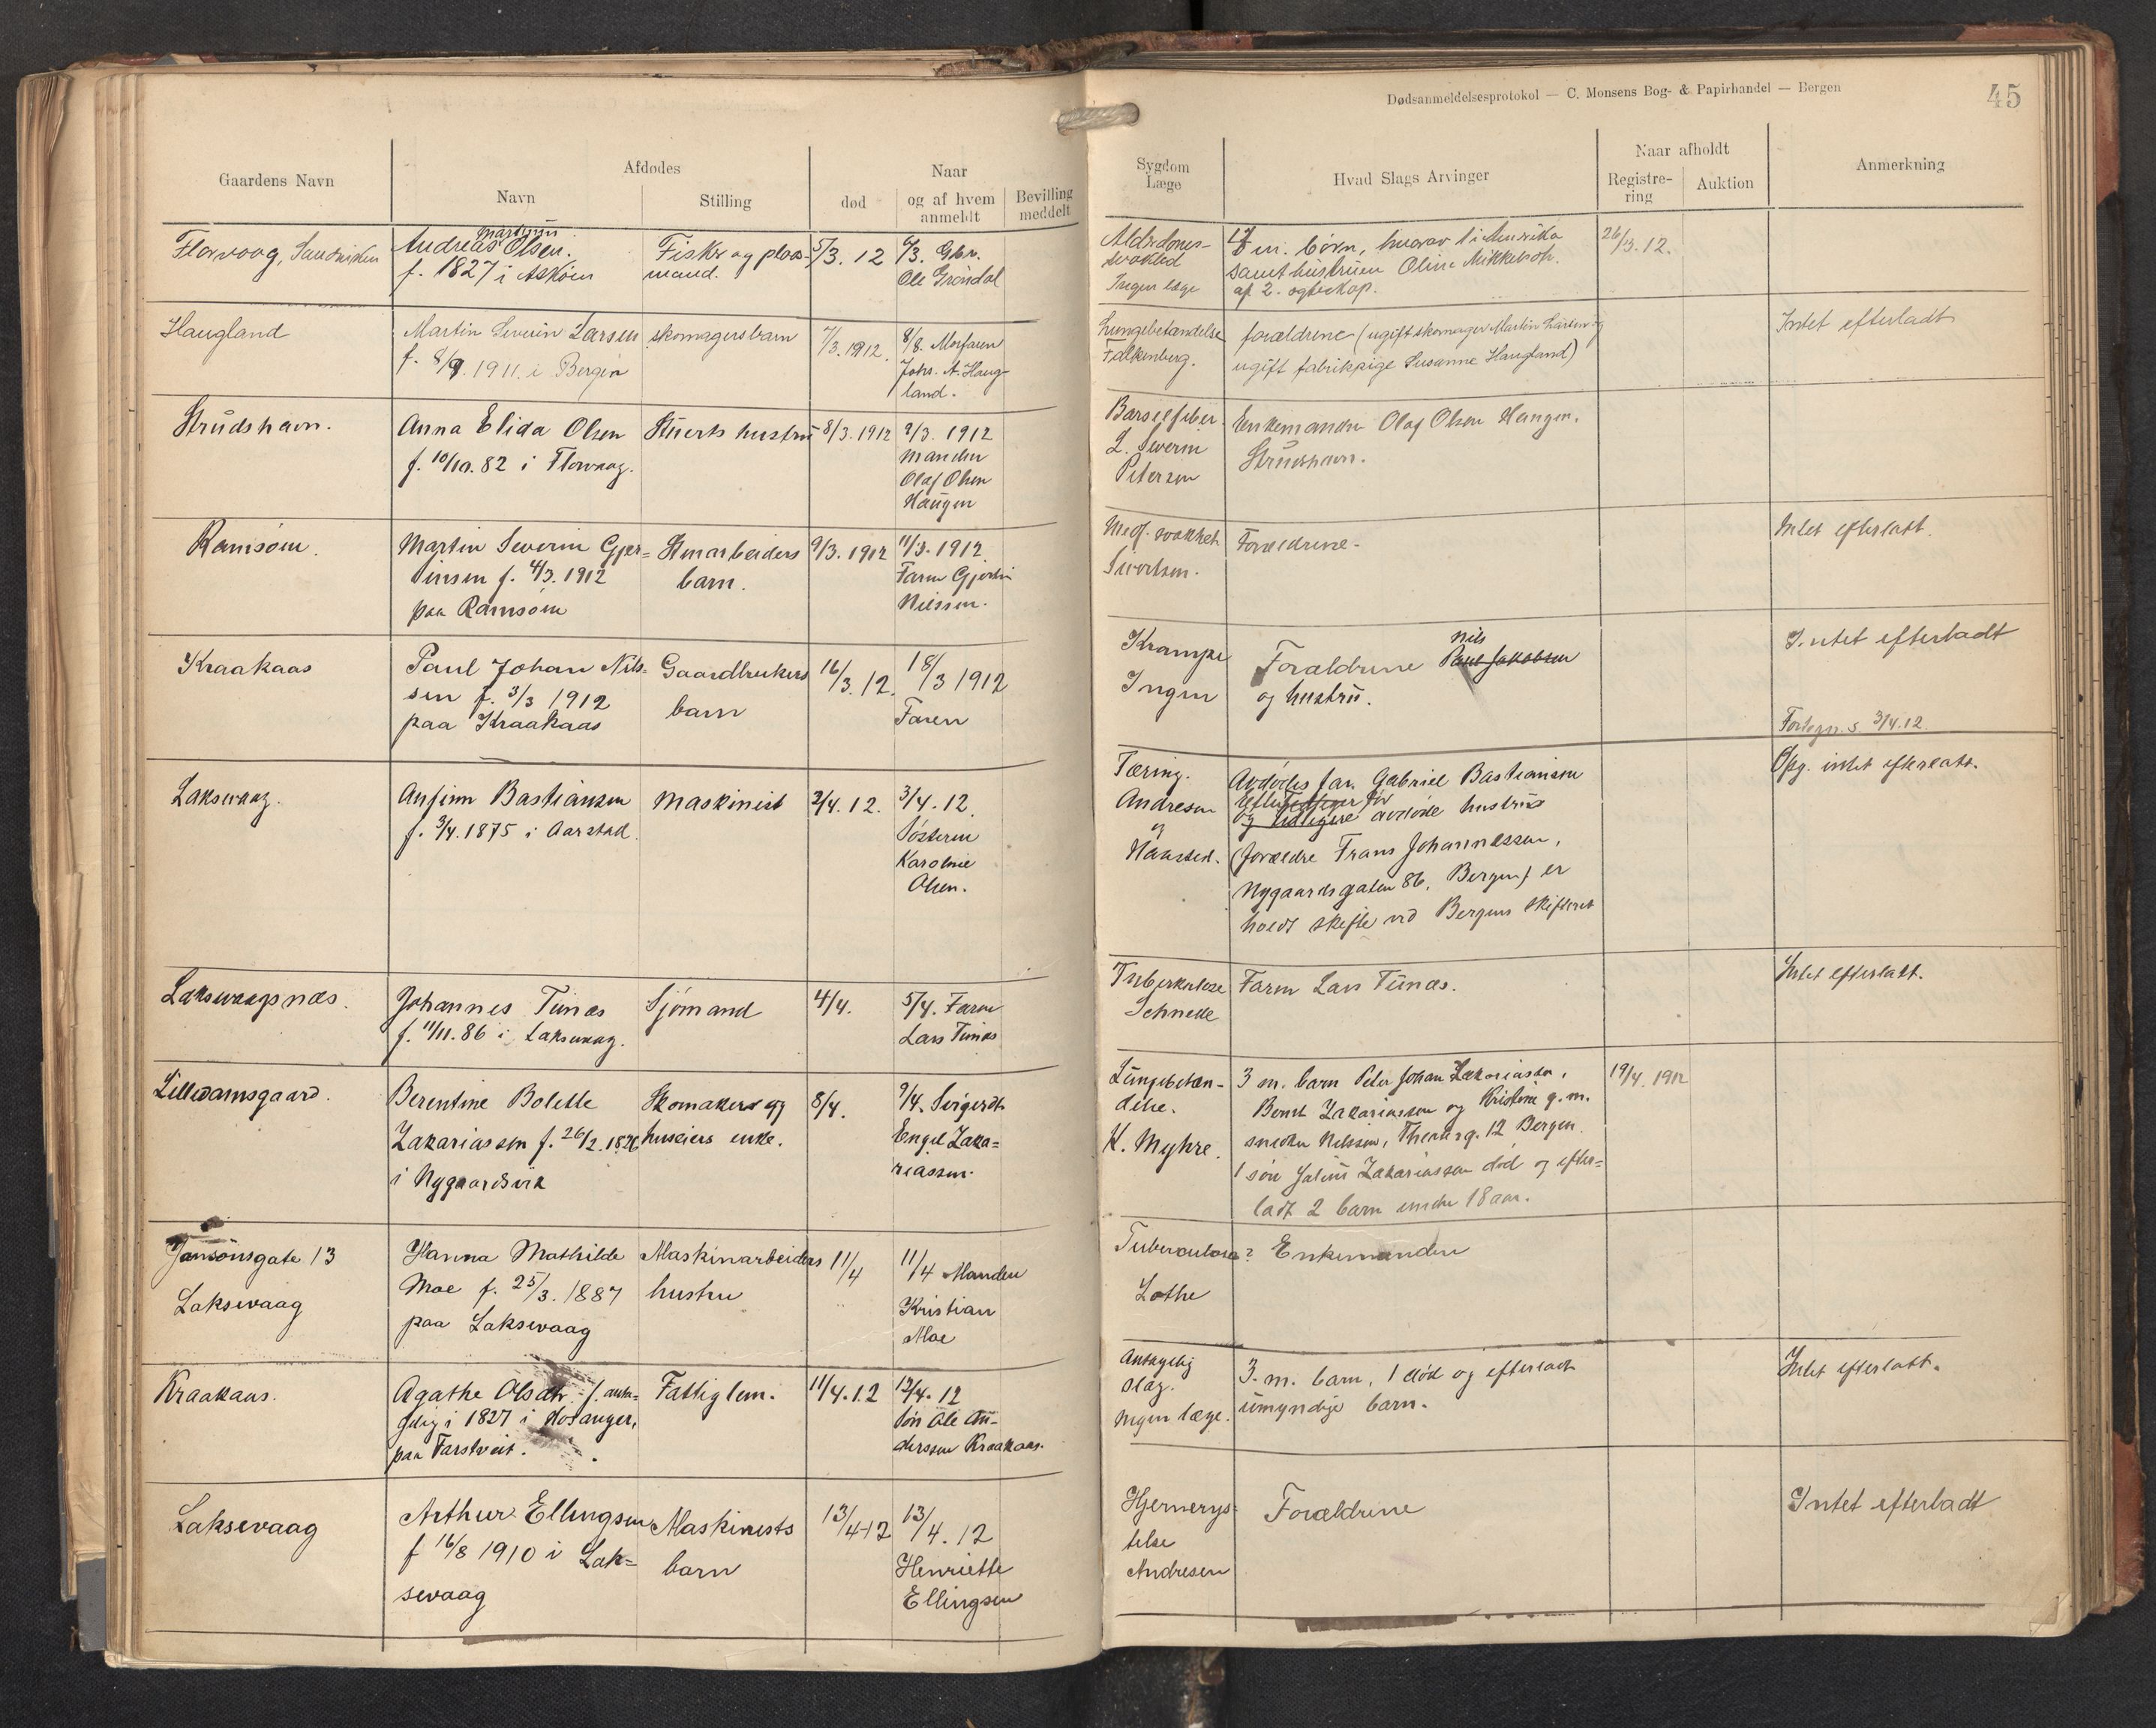 Dødsanmeldelsesprotokol — C. Monsens Bog- & Papirhandel — Bergen
45
Gaardens Navn
Afdødes
Navn
Stilling
Naar
død
og af hvem
anmeldt
Bevilling
meddelt
Sygdom
Læge
Hvad Slags Arvinger
Naar afholdt
Registre-
ring
Auktion
Anmerkning
Florvaag,
Martinus
Andreas Olsen.
f. 1827 i Askøen
Fisker og plads-
mand.
5/3. 12
6/3. Gbr.
Ole Grøndal
Alderdoms-
svakhed
Ingen læge
m. børn, hvorav 1 i Amerika
samt hustruen Oline Mikkelsdtr.
af 2. egteskap.
26/3. 12.
Haugland
Martin Severin Larsen
f. 1911. i Bergen
skomagersbarn
7/3. 1912.
8/3. Morfaren
Johs. A. Haug-
land.
Lungebetændelse
Falkenberg.
forældrene (ugift skomager Martin Larsen og
ugift fabrikpige Susanne Haugland)
Intet efterladt
Strudshavn.
Anna Elida Olsen
f. 10/10. 82 i Florvaag.
Stuerts hustru
8/3. 1912
9/3. 1912
Manden
Olaf Olsen
Haugen
Barselfeber.
L. Severin
Petersen
Enkemanden Olaf Olsen Haugen.
Strudshavn.
Ramsøen.
Martin Severin Gjer-
tinsen f. 4/3. 1912
paa Ramsøen
Stenarbeiders
barn.
9/3. 1912
11/3. 1912
Faren Gjertin
Nilssen.
Medf. svakhet
Sivertsen.
Forældrene.
Intet efterlatt.
Kraakaas
Paul Johan Nils-
sen f. 3/3 1912
paa Kraakaas
Gaardbrukers
barn
16/3. 12.
18/3 1912
Faren
Krampe
Ingen
Nils
Forældrene Paul Jakobsen
og hustru.
Intet efterladt
3/4. 12
Laksevaag.
Anfinn Bastiansen
f. 3/4. 1875 i Aarstad.
Maskinist
2/4. 12.
3/4. 12.
Søsteren
Karoline
Olsen.
Tæring.
Andresen
og
Haasted.
Avdødes far. Gabriel Bastiansen
Efter før
og tidligere avdøde hustru
(forældre Frans Johannessen,
Nygaardsgaten 86, Bergen) er
holdt skifte ved Bergens skifteret
Opg. intet efterlatt.
Laksevaagsnæs.
Johannes Tunæs
f. 11/11. 86 i Laksevaag.
Sjømand
4/4.
5/4. Faren
Lars Tunæs
Tuberkulose
Schnelle
Faren Lars Tunæs.
Intet efterlatt.
Lilledamsgaard.
Berentine Bolette
Zakariassen f. 26/2. 1826
i Nygaardsvik
Skomaker og
huseiers enke.
8/4.
9/4. Svigerdtr.
Engel Zaka-
riassen.
Lungebetæn-
delse.
K. Myhre.
3 m. barn Peter Johan Zakariassen,
Bernt Zakariassen og Kristine g. m.
snedker Nilssen, Theaterg. 12 Bergen.
1 søn Julius Zakariassen død og efter-
ladt 2 barn under 18 aar.
19/4. 1912
Jansonsgate 13
Laksevaag
Hanna Mathilde
Moe f. 25/3. 1887
paa Laksevaag
Maskinarbeiders
hustru
11/4
11/4 Manden
Kristian
Moe
Tuberculose?
Lothe
Enkemanden
Kraakaas.
Agathe Olsdtr. f. anta-
gelig i 1827 i Hosanger,
paa Tarstveit.
Fattiglem.
11/4. 12
12/4. 12
Søn Ole An-
derssen Kraakaas.
Antagelig
slag.
Ingen læge.
3. m. barn, 1 død og efterladt
umyndige barn.
Intet efterlatt.
Laksevaag
Arthur Ellingsen
f 16/8 1910 i Lak-
sevaag
Maskinists
barn
13/4 12
13/4. 12
Henriette
Ellingsen
Hjernerys-
telse
Andresen
Forældrene
Intet efterladt